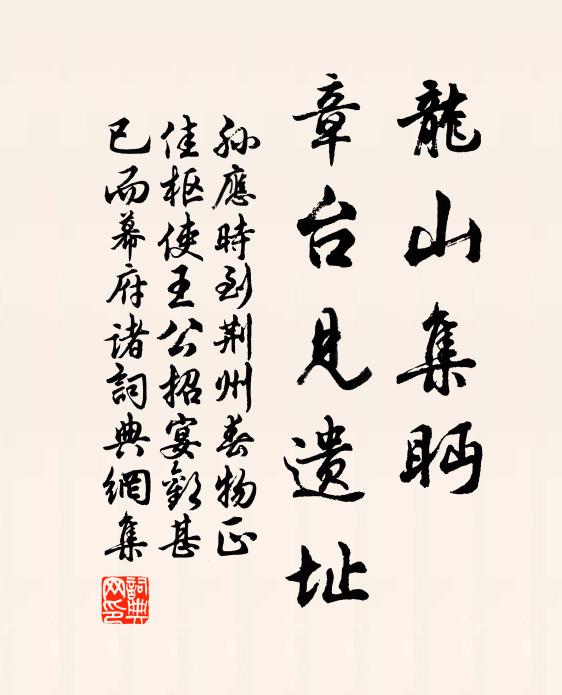 龍山集眄
章台見遗址
孙應時到荆州春物正
佳枢使王公招宴歡甚
已而幕府诸詞典網集
詞典网印